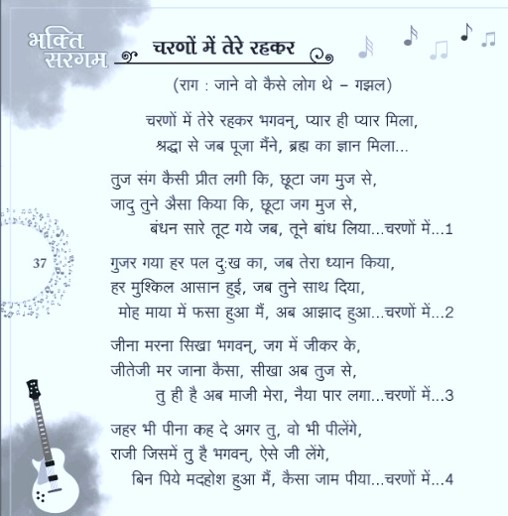 भक्ति
सरगम
चरणों में तेरे रहकर
(राग : जाने वो कैसे लोग थे – गझल)
चरणों में तेरे रहकर भगवन्, प्यार ही प्यार मिला,
श्रद्धा से जब पूजा मैंने, ब्रह्म का ज्ञान मिला...
तुज संग कैसी प्रीत लगी कि, छूटा जग मुज से,
जादु तुने अैसा किया कि, छूटा जग मुज से,
बंधन सारे तूट गये जब, तूने बांध लिया...चरणों में...1
37
गुजर गया हर पल दुःख का, जब तेरा ध्यान किया,
हर मुश्किल आसान हुई, जब तुने साथ दिया,
मोह माया में फसा हुआ मैं, अब आझाद हुआ...चरणों में...2
जीना मरना सिखा भगवन्, जग में जीकर के,
जीतेजी मर जाना कैसा, सीखा अब तुज से,
तु ही है अब माजी मेरा, नैया पार लगा...चरणों में...3
जहर भी पीना कह दे अगर तु, वो भी पीलेंगे,
राजी जिसमें तु है भगवन्, ऐसे जी लेंगे,
बिन पिये मदहोश हुआ मैं, कैसा जाम पीया...चरणों में...4